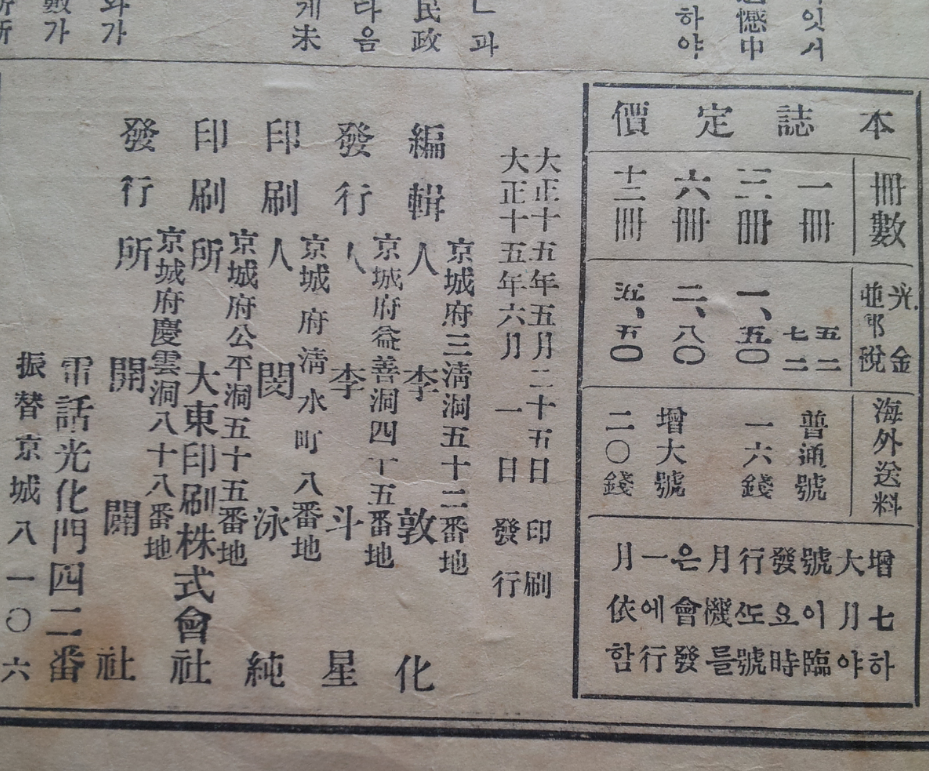 잇서
憾中
하야
과
民政
라음
게未
와가
數가
本誌定價
冊數
一冊
三冊
六冊
十二冊
光金
並郵稅
五二
七二
一、五〇
二、八〇
五、五〇
海外送料
普通號
一六錢
增大號
二〇錢
增大號發行月은一月
七月이요도機會에依
하야臨時號를發行함
大正十五年五月二十五日 印刷
大正十五年六月 一日 發行
京城府三淸洞五十二番地
編輯人 李敦化
京城府益善洞四十五番地
發行人 李斗星
京城府淸水町八番地
印刷人 閔泳純
京城府公平洞五十五番地
印刷所 大東印刷株式會社
京城府慶雲洞八十八番地
發行所 開闢社
電話光化門四二番
振替京城八一〇六